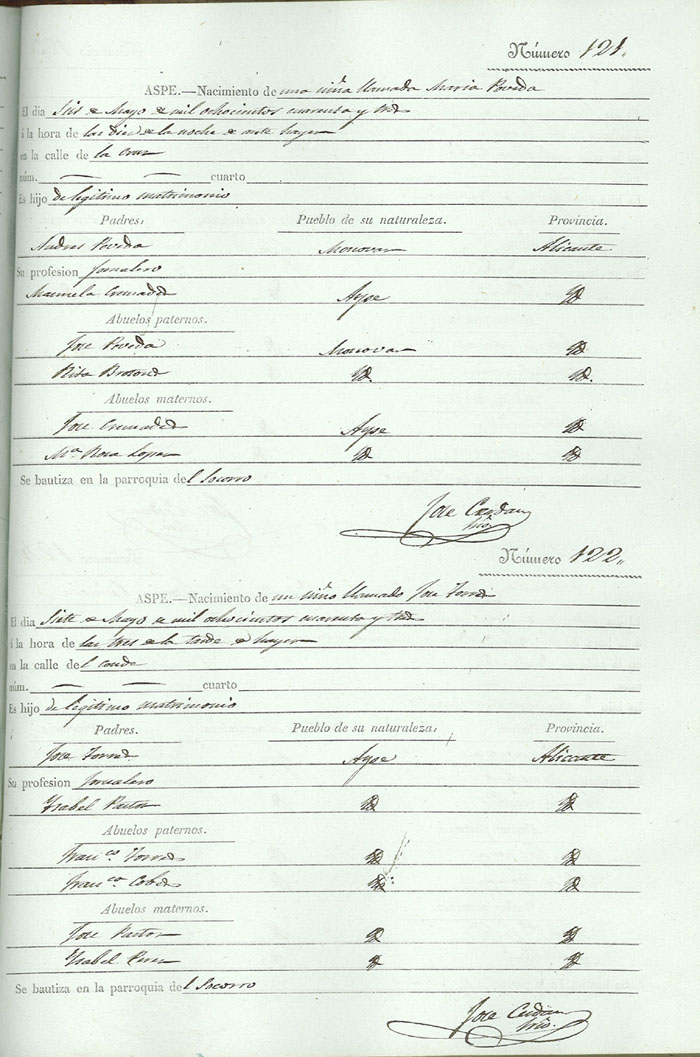 Número 121.
ASPE.—Nacimiento de una niña llamada Maria Poveda
El dia Seis de Mayo de mil ochocientos cuarenta y tres
á la hora de las diez de la noche de
en la calle de la Cruz
núm. — — cuarto
Es hijo de legitimo matrimonio
Padres: Pueblo de su naturaleza. Provincia.
Andres Poveda Monovar Alicante
Su profesion Jornalero
Manuela Cremades Aspe Yd
Abuelos paternos.
Jose Poveda Monovar Yd
Rita Brotons Yd. Yd.
Abuelos maternos.
Jose Cremades Aspe Yd
Mª Rosa Lopez Yd Yd
Se bautiza en la parroquia del Socorro
Jose Cerdan
Srio.
Número 122.
ASPE.—Nacimiento de un niño llamado Jose Torres
El dia Siete de Mayo de mil ochocientos cuarenta y tres
á la hora de las tres de la tarde de
en la calle del Conde
núm. — — cuarto
Es hijo de legitimo matrimonio
Padres. Pueblo de su naturaleza: Provincia.
Jose Torres Aspe Alicante
Su profesion Jornalero
Ysabel Pastor Yd Yd
Abuelos paternos.
Franco. Torres Yd Yd
Franca Yd Yd
Abuelos maternos.
Jose Pastor Yd Yd
Ysabel Perez Yd Yd
Se bautiza en la parroquia del Socorro
Jose Cerdan
Srio.